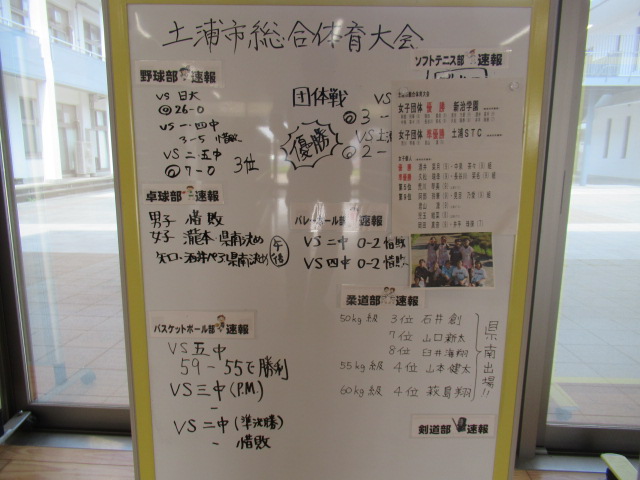 土浦市総合体育大会
野球部 速報
VS 日大
◎26-0
VS 一・四中
3-5 惜敗
VS 二・五中
◎7-0 3位
ソフトテニス部 速報
団体戦
優勝
VS
◎3-
VS土浦
◎2-
土浦市総合体育大会
女子団体 優勝 新治学園
女子団体 準優勝 土浦STC
女子個人
優勝
準優勝
第5位
第9位
卓球部 速報
男子 惜敗
女子 瀧本 県南決め
酒井ペア県南決め 午後
バレーボール部 速報
VS 二中 0-2 惜敗
VS 四中 0-2 惜敗
バスケットボール部 速報
VS五中
59-55で勝利
VS三中(P.M)
-
VS二中(準決勝)
- 惜敗
柔道部 速報
50kg級 3位 石井 創
7位 山口新太
8位 臼井海翔
55kg級 4位 山本健太
60kg級 4位 萩島翔
県南出場!!
剣道部 速報